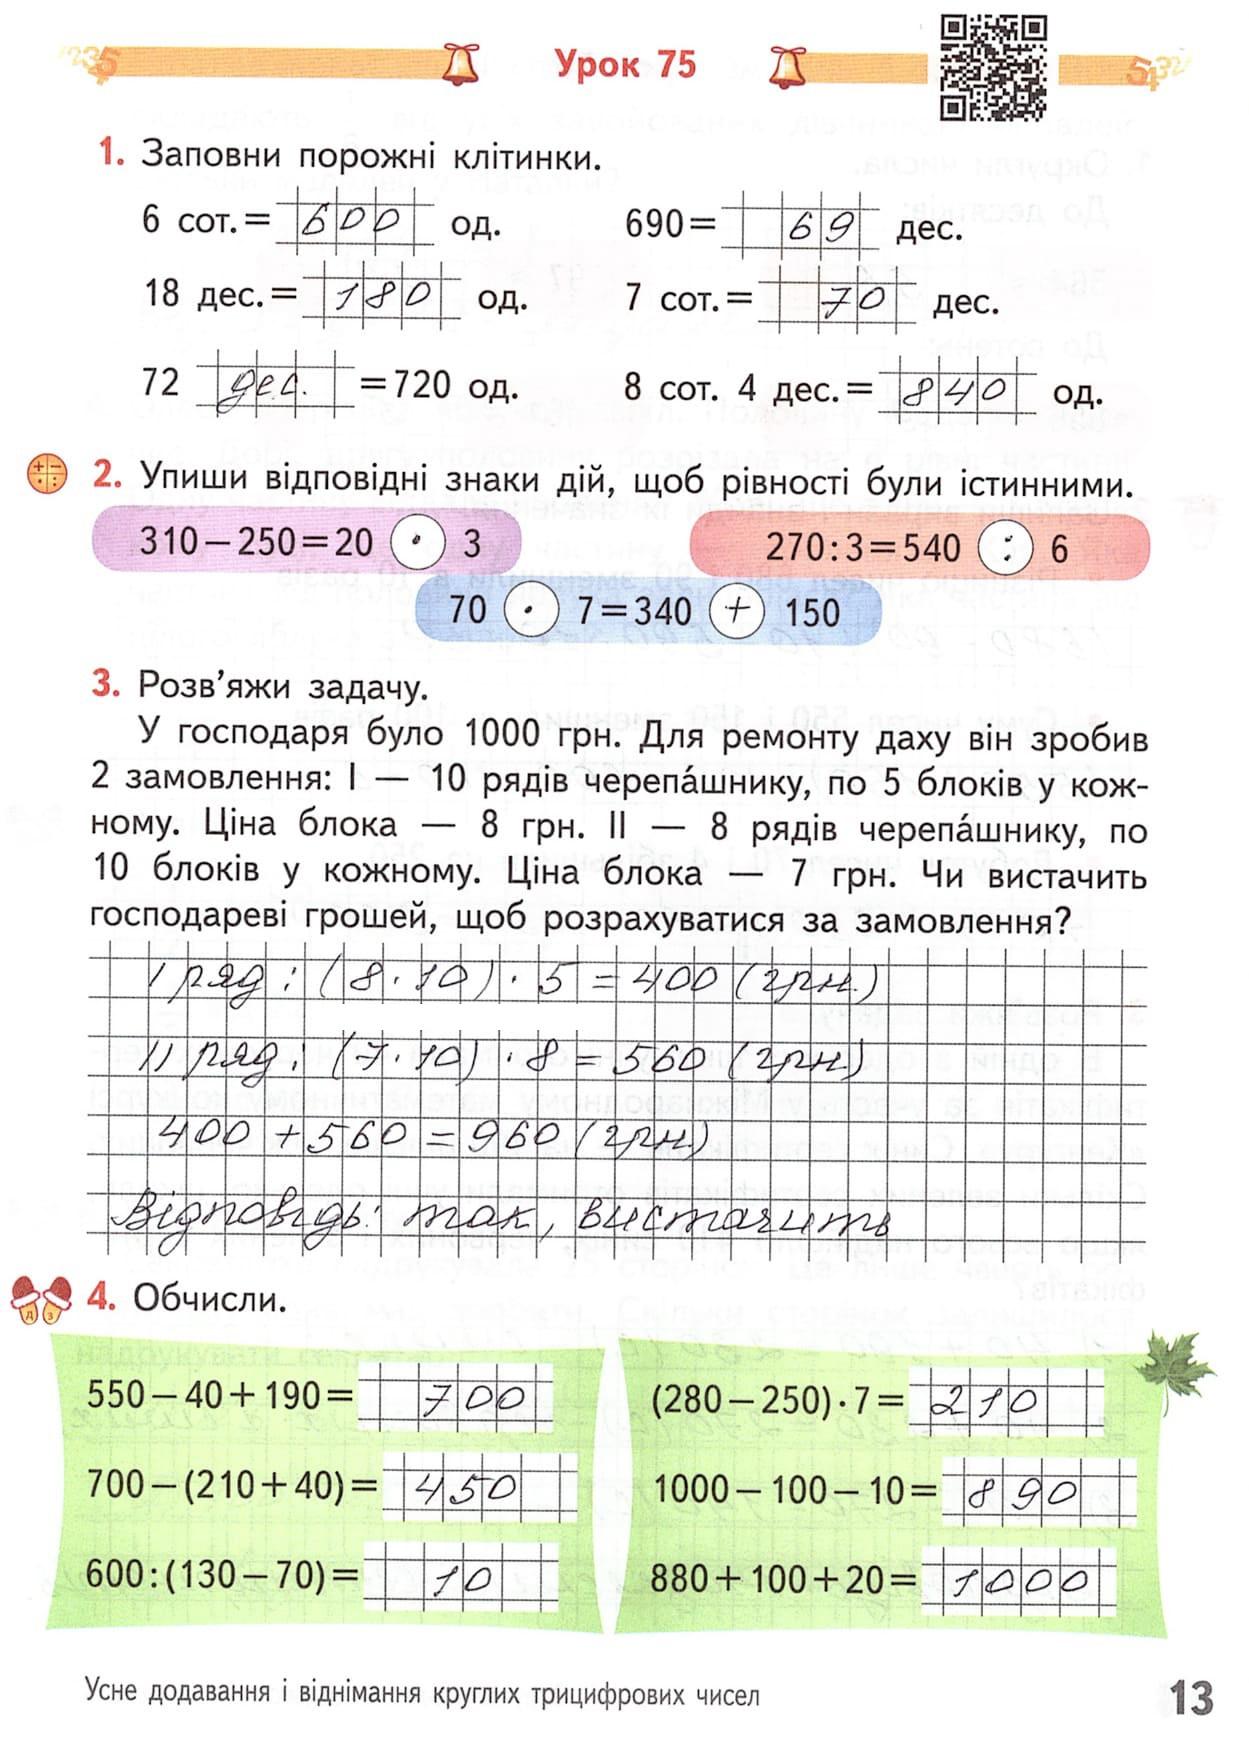 Урок 75
1. Заповни порожні клітинки.
6 сот. = 600 од.
690 = 69 дес.
18 дес. = 180 од.
7 сот. = 70 дес.
72 дес. = 720 од.
8 сот. 4 дес. = 840 од.
2. Упиши відповідні знаки дій, щоб рівності були істинними.
310 – 250 = 20 · 3
270 : 3 = 540 : 6
70 · 7 = 340 + 150
3. Розв’яжи задачу.
У господаря було 1000 грн. Для ремонту даху він зробив
2 замовлення: І — 10 рядів черепа́шнику, по 5 блоків у кож-
ному. Ціна блока — 8 грн. ІІ — 8 рядів черепа́шнику, по
10 блоків у кожному. Ціна блока — 7 грн. Чи вистачить
господареві грошей, щоб розрахуватися за замовлення?
I ряд : (8 · 10) · 5 = 400 (грн.)
II ряд : (7 · 10) · 8 = 560 (грн)
400 + 560 = 960 (грн)
Відповідь: так, вистачить
Д З
4. Обчисли.
550 – 40 + 190 = 700
(280 – 250) · 7 = 210
700 – (210 + 40) = 450
1000 – 100 – 10 = 890
600 : (130 – 70) = 10
880 + 100 + 20 = 1000
Усне додавання і віднімання круглих трицифрових чисел
13